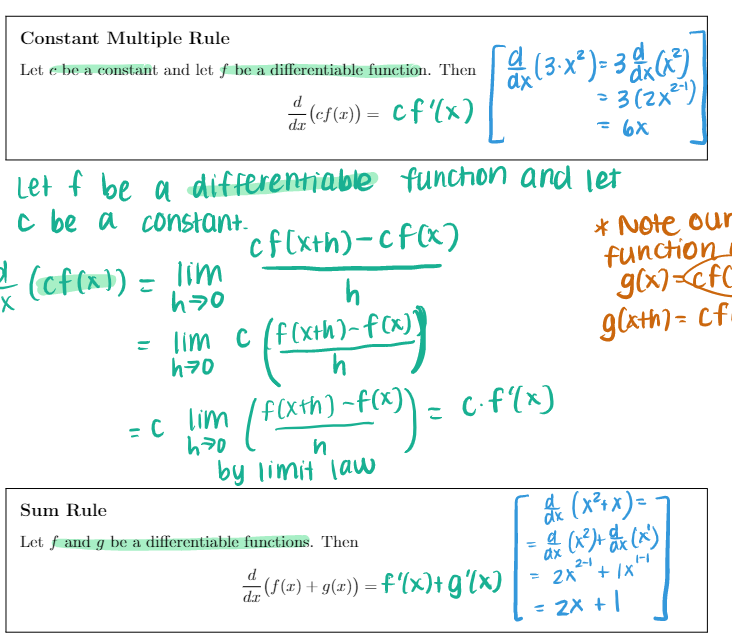 Constant Multiple Rule
Let c be a constant and let f be a differentiable function. Then
d/dx (cf(x)) = cf'(x)
[ d/dx (3·x²) = 3 d/dx (x²)
= 3(2x²⁻¹)
= 6x ]
Let f be a differentiable function and let
c be a constant.
d/dx (cf(x)) = lim h→0 (cf(x+h) - cf(x)) / h
= lim h→0 c ( (f(x+h) - f(x)) / h )
= c lim h→0 ( (f(x+h) - f(x)) / h ) = c·f'(x)
by limit law
* Note our
function
g(x) = cf(
g(x+h) = cf
Sum Rule
Let f and g be a differentiable functions. Then
d/dx (f(x) + g(x)) = f'(x) + g'(x)
[ d/dx (x² + x) =
= d/dx (x²) + d/dx (x¹)
= 2x²⁻¹ + 1x¹⁻¹
= 2x + 1 ]